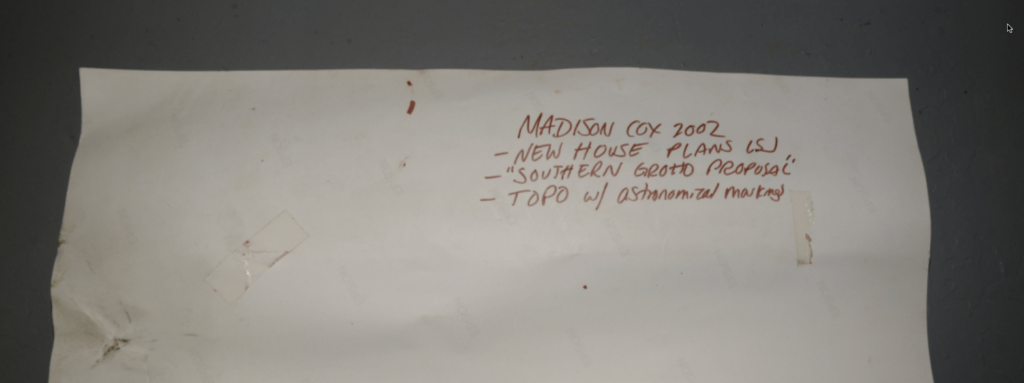 MADISON COX 2002
- NEW HOUSE PLANS (S)
- "SOUTHERN GROTTO PROPOSAL"
- TOPO w/ astronomical markings